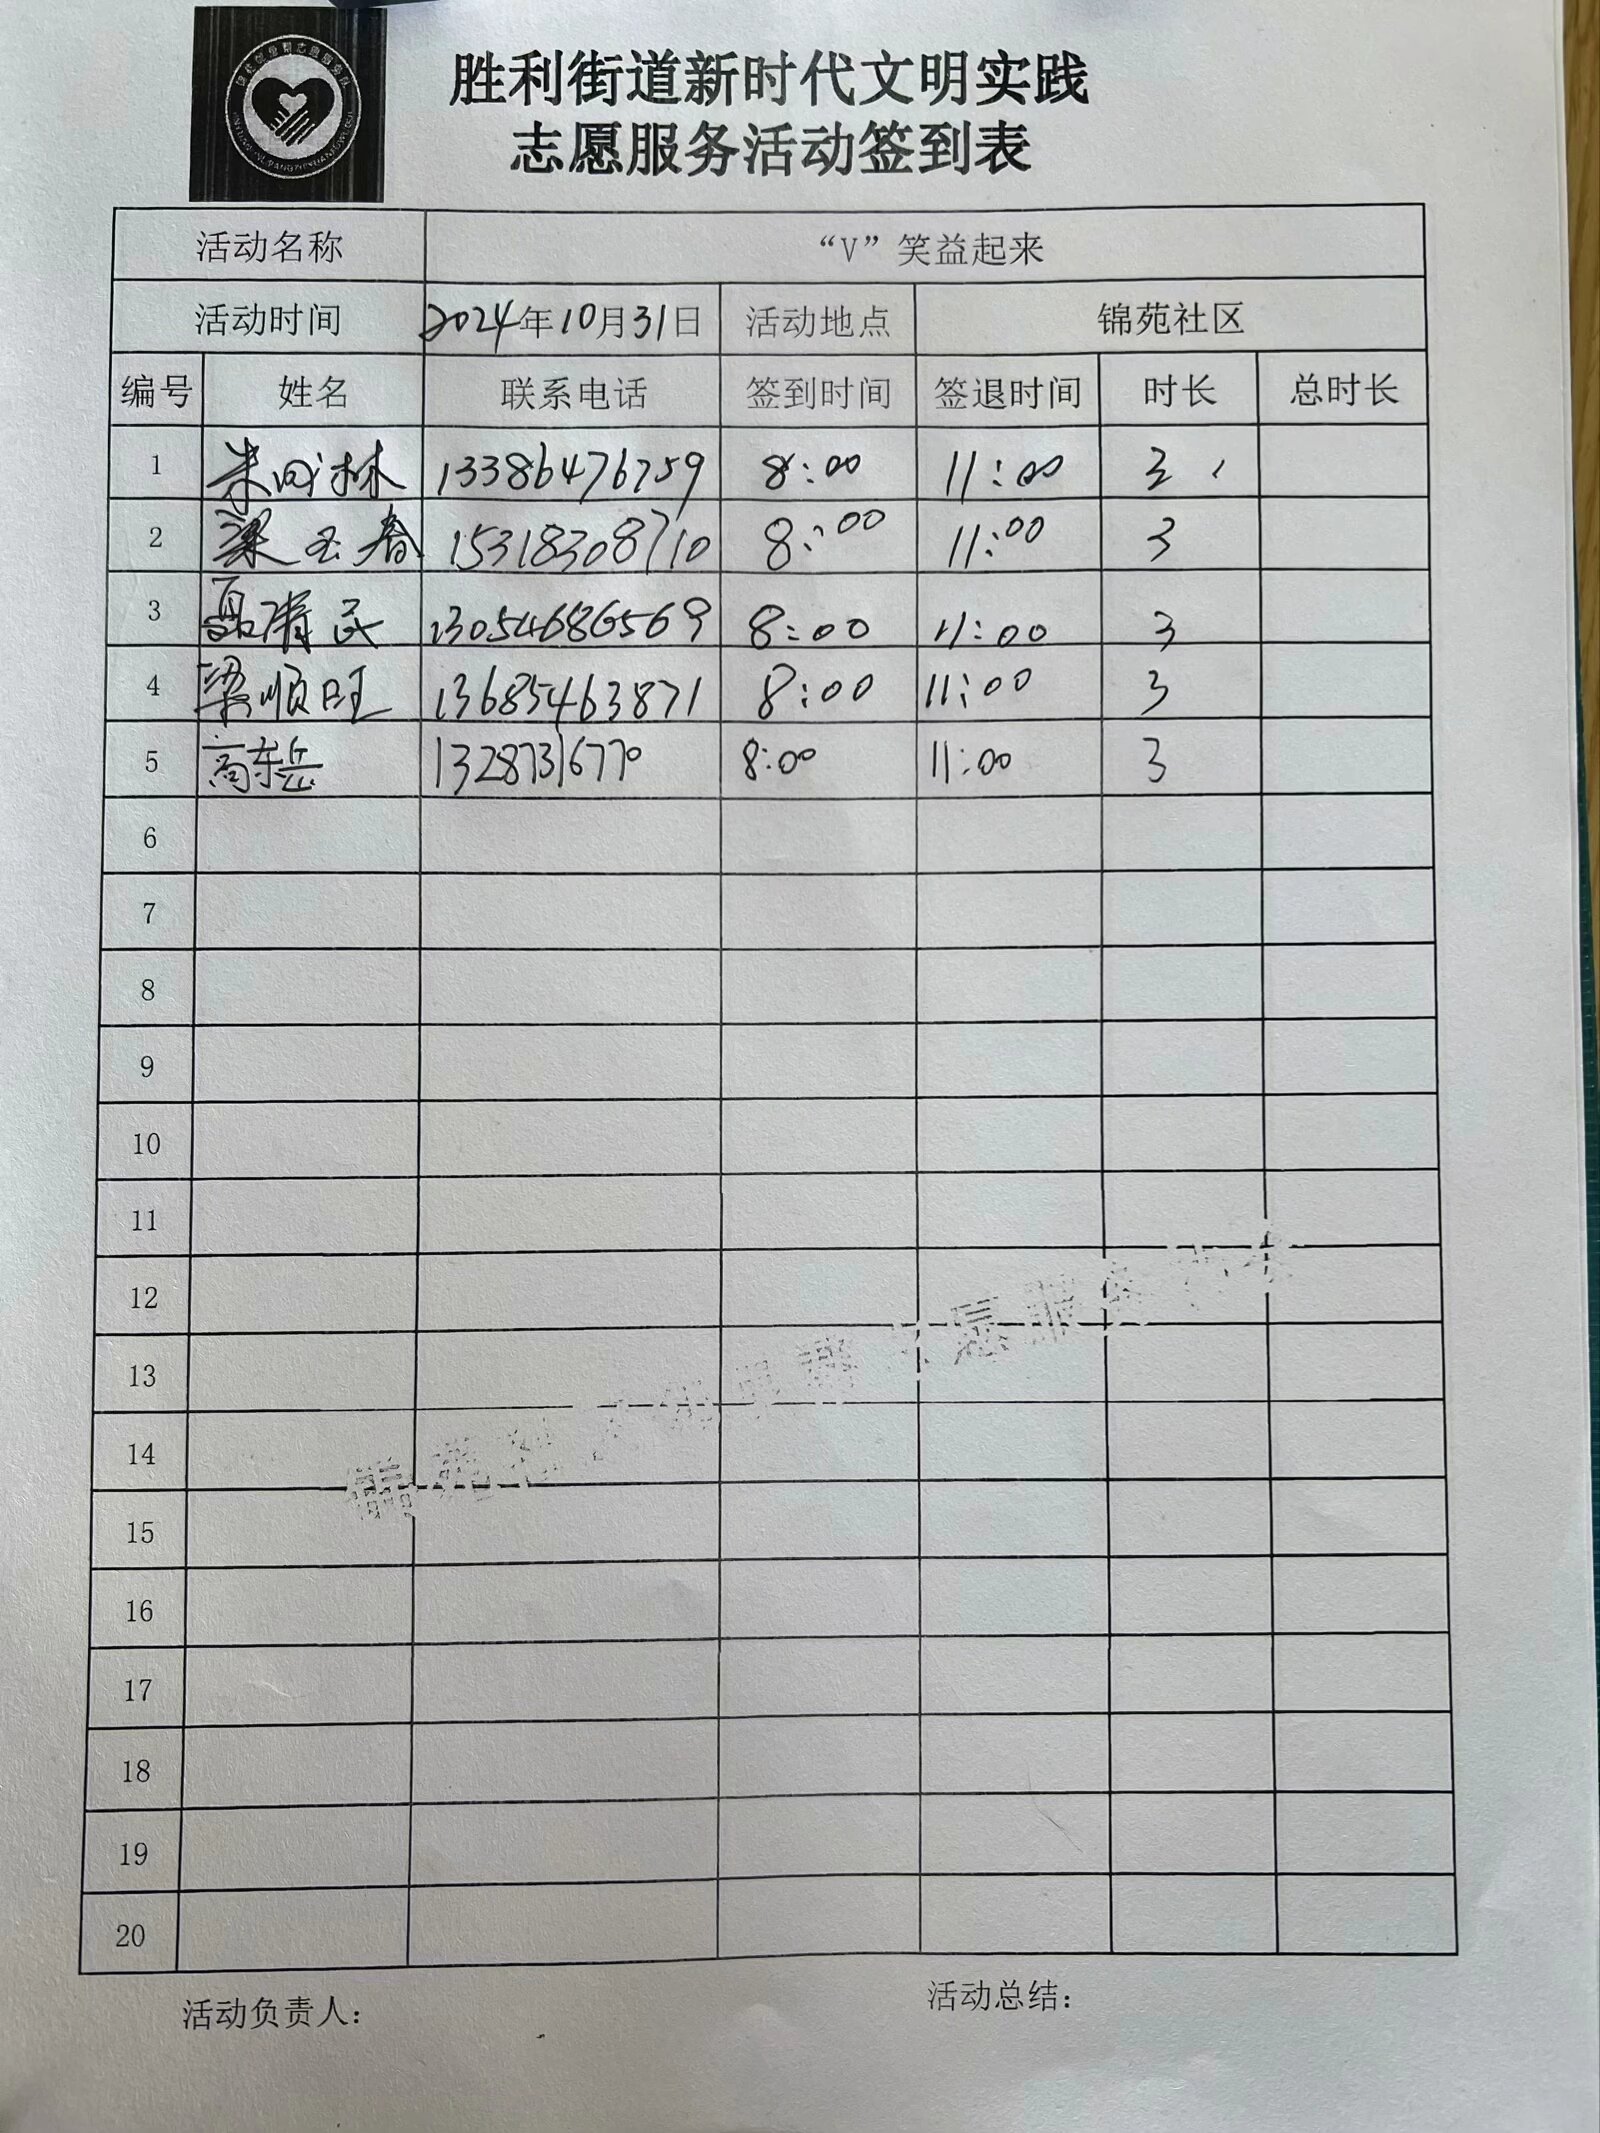 胜利街道新时代文明实践
志愿服务活动签到表
活动名称 “V”笑益起来
活动时间 2024年10月31日 活动地点 锦苑社区
编号 姓名 联系电话 签到时间 签退时间 时长 总时长
1 朱成林 13386476759 8:00 11:00 3
2 梁玉春 15318308710 8:00 11:00 3
3 聂清民 13054686569 8:00 11:00 3
4 梁顺旺 13685463871 8:00 11:00 3
5 高东岳 13287316770 8:00 11:00 3
6
7
8
9
10
11
12
13
14
15
16
17
18
19
20
活动负责人： 活动总结：